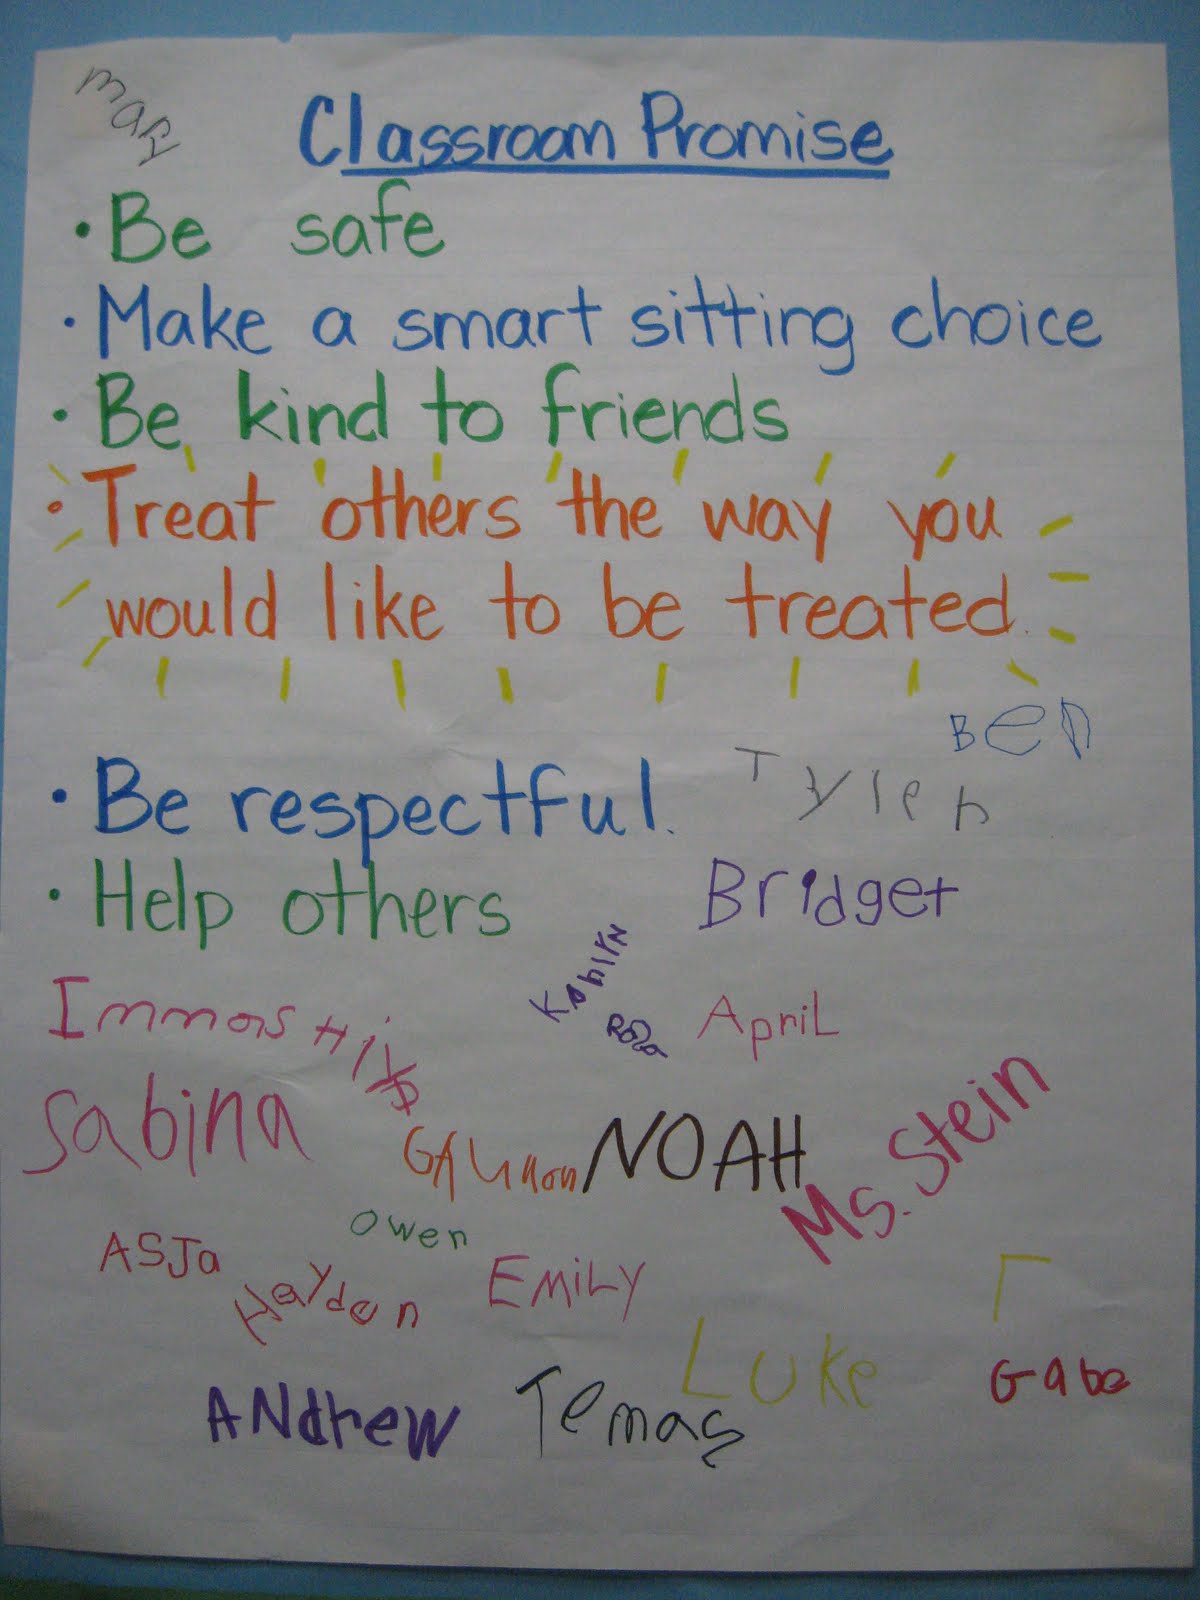 mary
Classroom Promise
• Be safe
• Make a smart sitting choice
• Be kind to friends
• Treat others the way you
would like to be treated.
Ben
Tyler
• Be respectful.
• Help others
Bridget
April
Sabina
NOAH
Ms. Stein
Owen
ASJa
Hayden
EMiLY
LUKe
Gabe
ANdrew
Temas